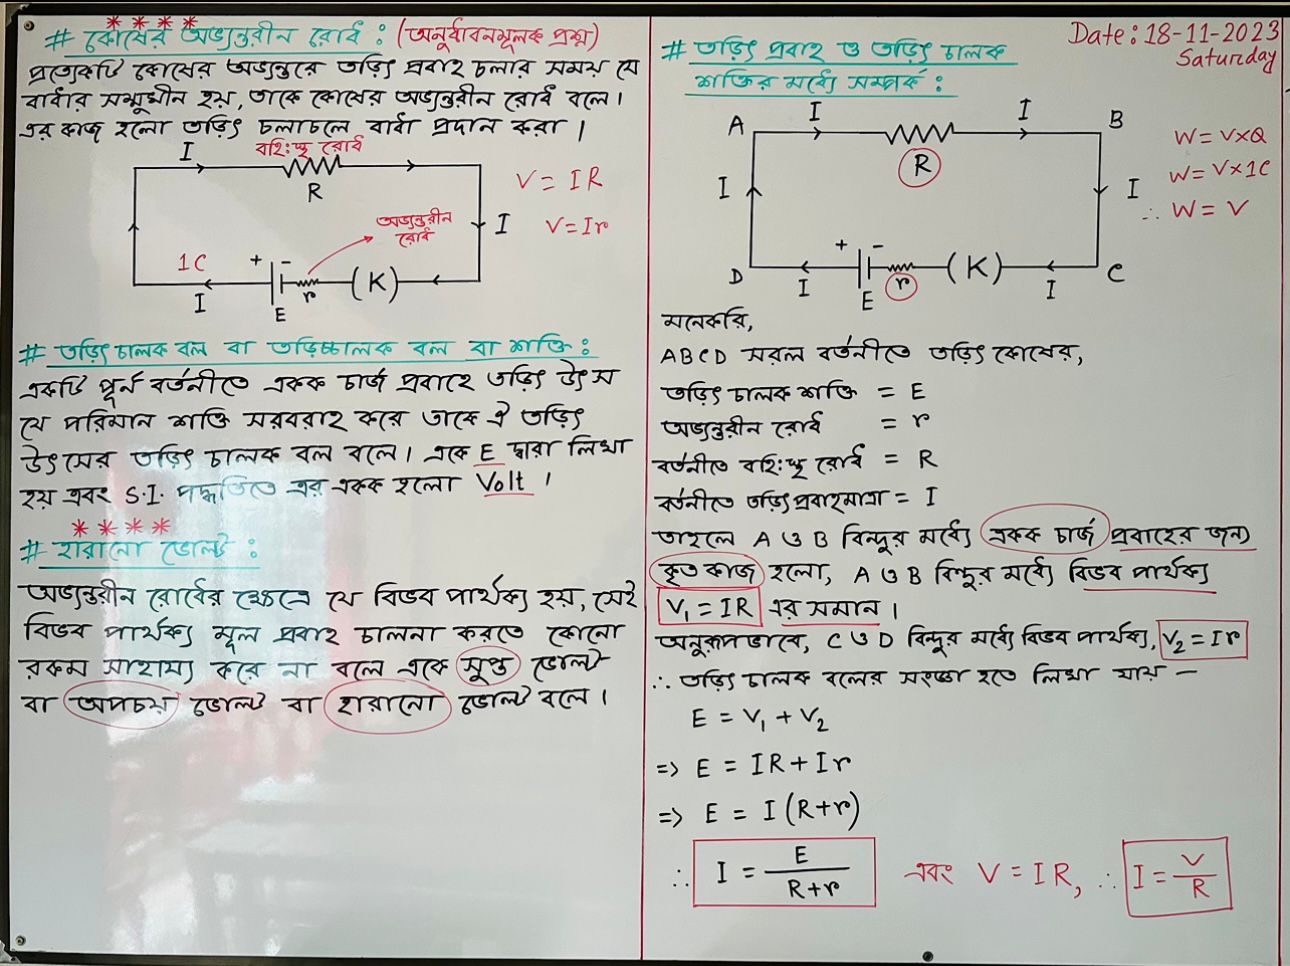 # কোষের অভ্যন্তরীন রোধ : (অনুধাবনমূলক প্রশ্ন)
প্রত্যেকটি কোষের অভ্যন্তরে তড়িৎ প্রবাহ চলার সময় যে
বাধার সম্মুখীন হয়, তাকে কোষের অভ্যন্তরীন রোধ বলে।
এর কাজ হলো তড়িৎ চলাচলে বাধা প্রদান করা।
I বহিঃস্থ রোধ
R
V = IR
অভ্যন্তরীন
রোধ
I
V = Ir
1C
I
+ -
E
r
(K)
# তড়িৎ চালক বল বা তড়িচ্চালক বল বা শক্তি :
একটি পূর্ন বর্তনীতে একক চার্জ প্রবাহে তড়িৎ উৎস
যে পরিমান শক্তি সরবরাহ করে তাকে ঐ তড়িৎ
উৎসের তড়িৎ চালক বল বলে। একে E দ্বারা লিখা
হয় এবং S.I. পদ্ধতিতে এর একক হলো Volt ।
# হারানো ভোল্ট :
অভ্যন্তরীন রোধের ক্ষেত্রে যে বিভব পার্থক্য হয়, সেই
বিভব পার্থক্য মূল প্রবাহ চালনা করতে কোনো
রকম সাহায্য করে না বলে একে সুপ্ত ভোল্ট
বা অপচয় ভোল্ট বা হারানো ভোল্ট বলে।
Date : 18-11-2023
Saturday
# তড়িৎ প্রবাহ ও তড়িৎ চালক
শক্তির মধ্যে সম্পর্ক :
A I I B
R
I I
W = V×Q
W = V×1C
∴ W = V
D I + - E r (K) I C
মনেকরি,
ABCD সরল বর্তনীতে তড়িৎ কোষের,
তড়িৎ চালক শক্তি = E
অভ্যন্তরীন রোধ = r
বর্তনীতে বহিঃস্থ রোধ = R
বর্তনীতে তড়িৎ প্রবাহমাত্রা = I
তাহলে A ও B বিন্দুর মধ্যে একক চার্জ প্রবাহের জন্য
কৃত কাজ হলো, A ও B বিন্দুর মধ্যে বিভব পার্থক্য
V₁ = IR এর সমান।
অনুরূপভাবে, C ও D বিন্দুর মধ্যে বিভব পার্থক্য, V₂ = Ir
∴ তড়িৎ চালক বলের সংজ্ঞা হতে লিখা যায় —
E = V₁ + V₂
=> E = IR + Ir
=> E = I (R+r)
∴ I = E/(R+r) এবং V = IR, ∴ I = V/R